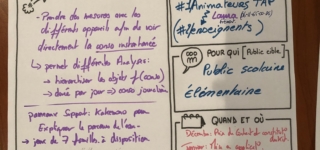 - Prendre des mesures avec les
différents appareils afin de voir
directement la conso instantanée
↳ permet différentes Analyses:
→ hiérarchiser les objets f(conso)
→ durée par jour => conso journalière
Support:
Expliquer le parcours de l'eau
→ jeux de 7 familles à disposition
#1 Animateurs TAP
↳ Laura
#1 enseignants
POUR QUI [Public cible]
Public scolaire
Élémentaire
QUAND ET OÙ